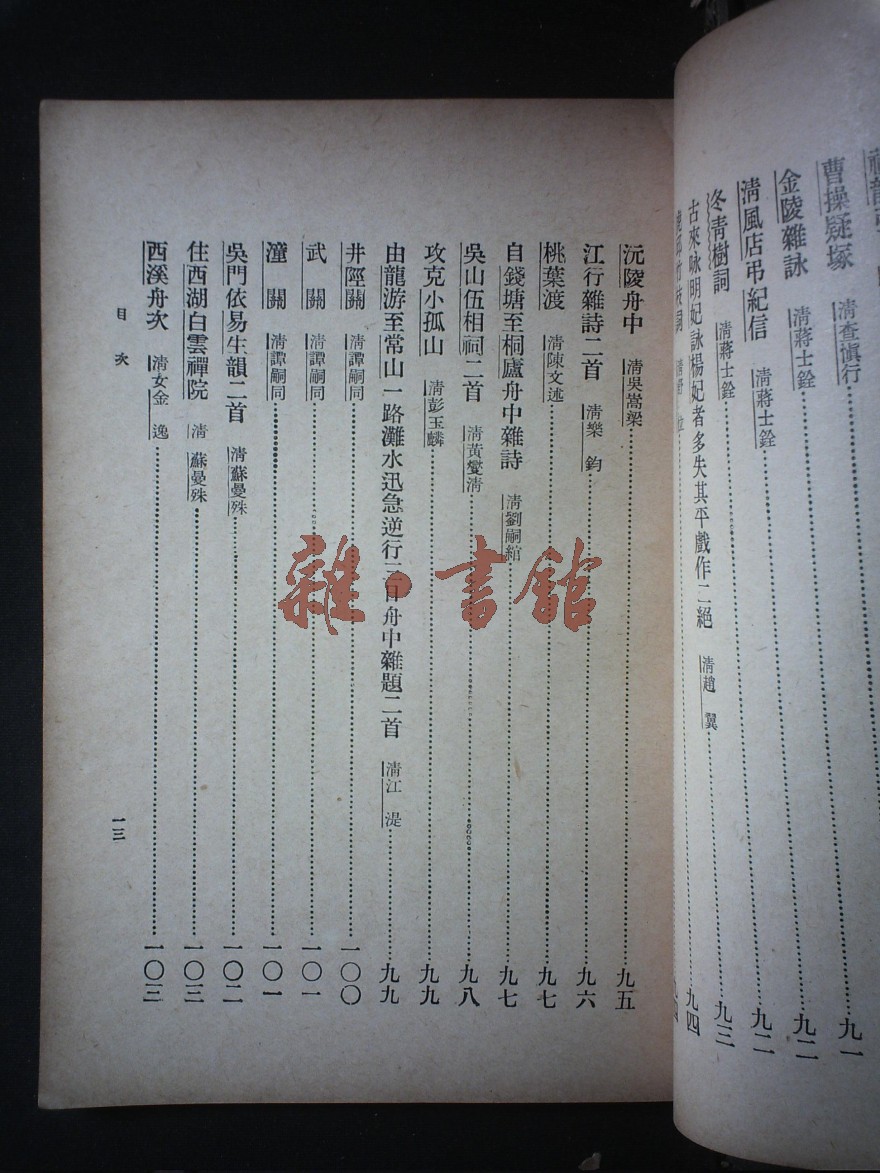 曹操疑塚 清查慎行 九一
金陵雜詠 清蔣士銓 九二
清風店弔紀信 清蔣士銓 九二
冬青樹詞 清蔣士銓 九三
古來咏明妃詠楊妃者多失其平戲作二絕 清趙 翼 九四
沅陵舟中 清吳嵩梁 九五
江行雜詩二首 清樂 鈞 九六
桃葉渡 清陳文述 九七
自錢塘至桐廬舟中雜詩 清劉嗣綰 九七
吳山伍相祠二首 清黃燮清 九八
攻克小孤山 清彭玉麟 九九
由龍游至常山一路灘水迅急逆行三日舟中雜題二首 清江 湜 九九
井陘關 清譚嗣同 一〇〇
武 關 清譚嗣同 一〇一
潼 關 清譚嗣同 一〇一
吳門依易生韻二首 清蘇曼殊 一〇二
住西湖白雲禪院 清 蘇曼殊 一〇三
西溪舟次 清女金 逸 一〇三
目 次
一三
雜·書館